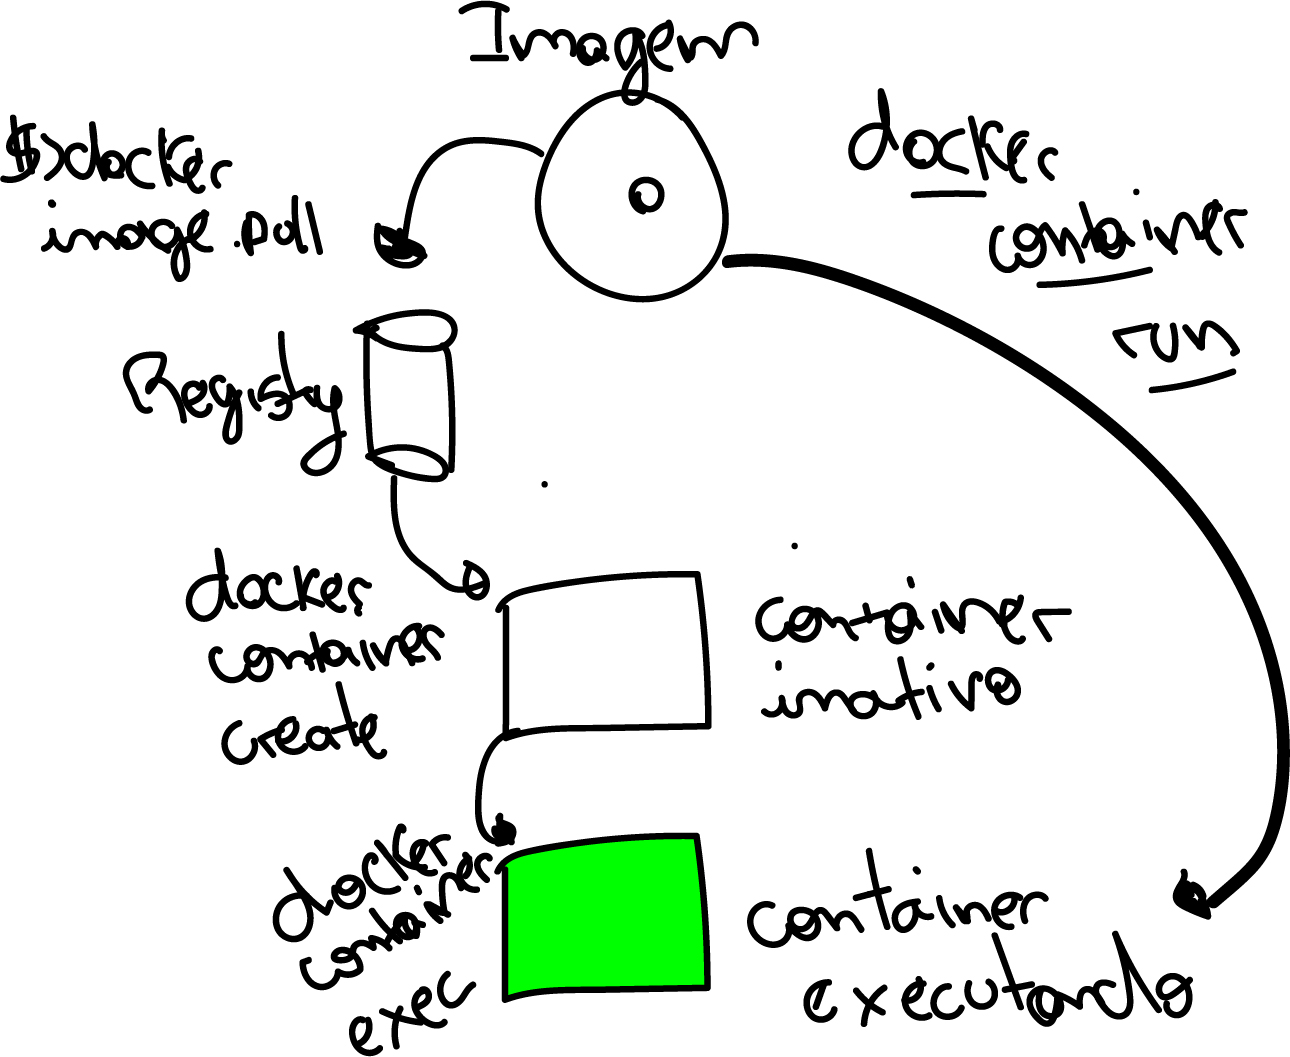 Imagem
$>docker
image pull
docker
container
run
Registy
docker
container
create
container
inativo
docker
container
exec
container
executando